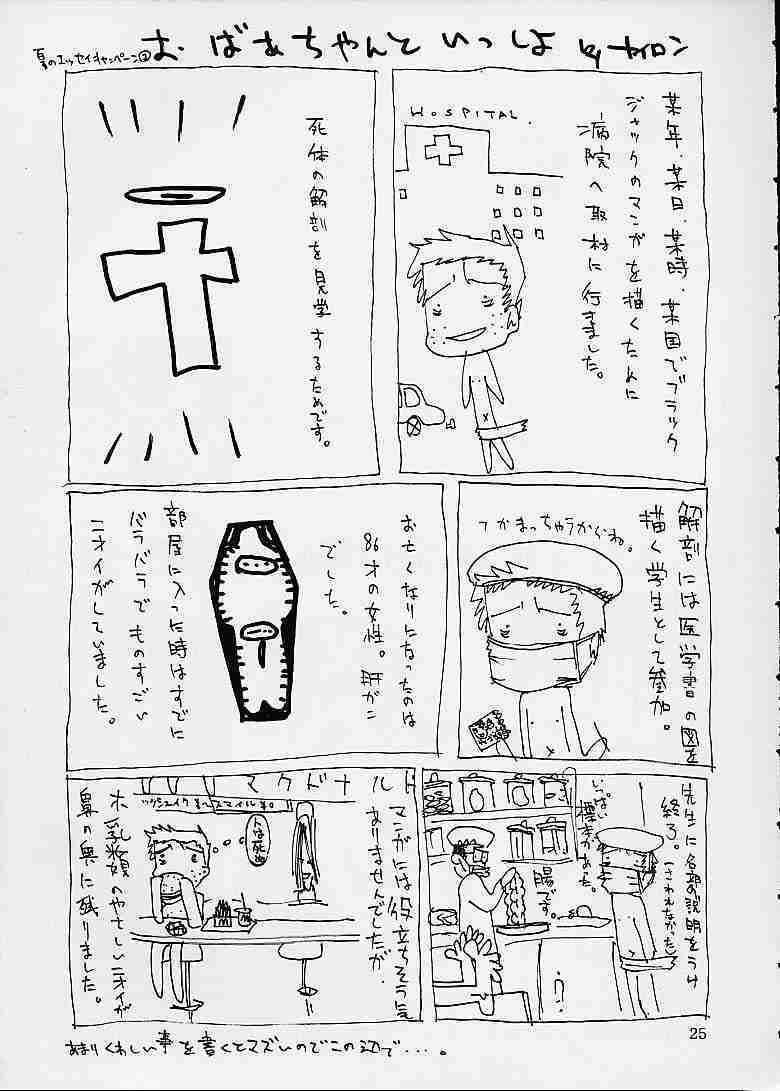 夏のエッセイキャンペーン②
おばあちゃんといっしょ by ナイロン
某年、某日、某時、某国でブラック
ジャックのマンガを描くために
病院へ取材に行きました。
HOSPITAL.
死体の解剖を見学するためです。
解剖には医学書の図を
描く学生として参加。
つかまっちゃうからね。
お亡くなりになったのは
86才の女性。肝がん
でした。
部屋に入った時はすでに
バラバラでものすごい
ニオイがしていました。
先生に各部の説明をうけ
終了。(さわれなかった)
いっぱい
標本があった。
腸です。
マクドナルド
マンガには役立ちそうに
ありませんでしたが、
人は死ぬ
ホ乳類のやさしいニオイが
鼻の奥に残りました。
あまりくわしい事を書くとマズいのでこの辺で・・・。
25